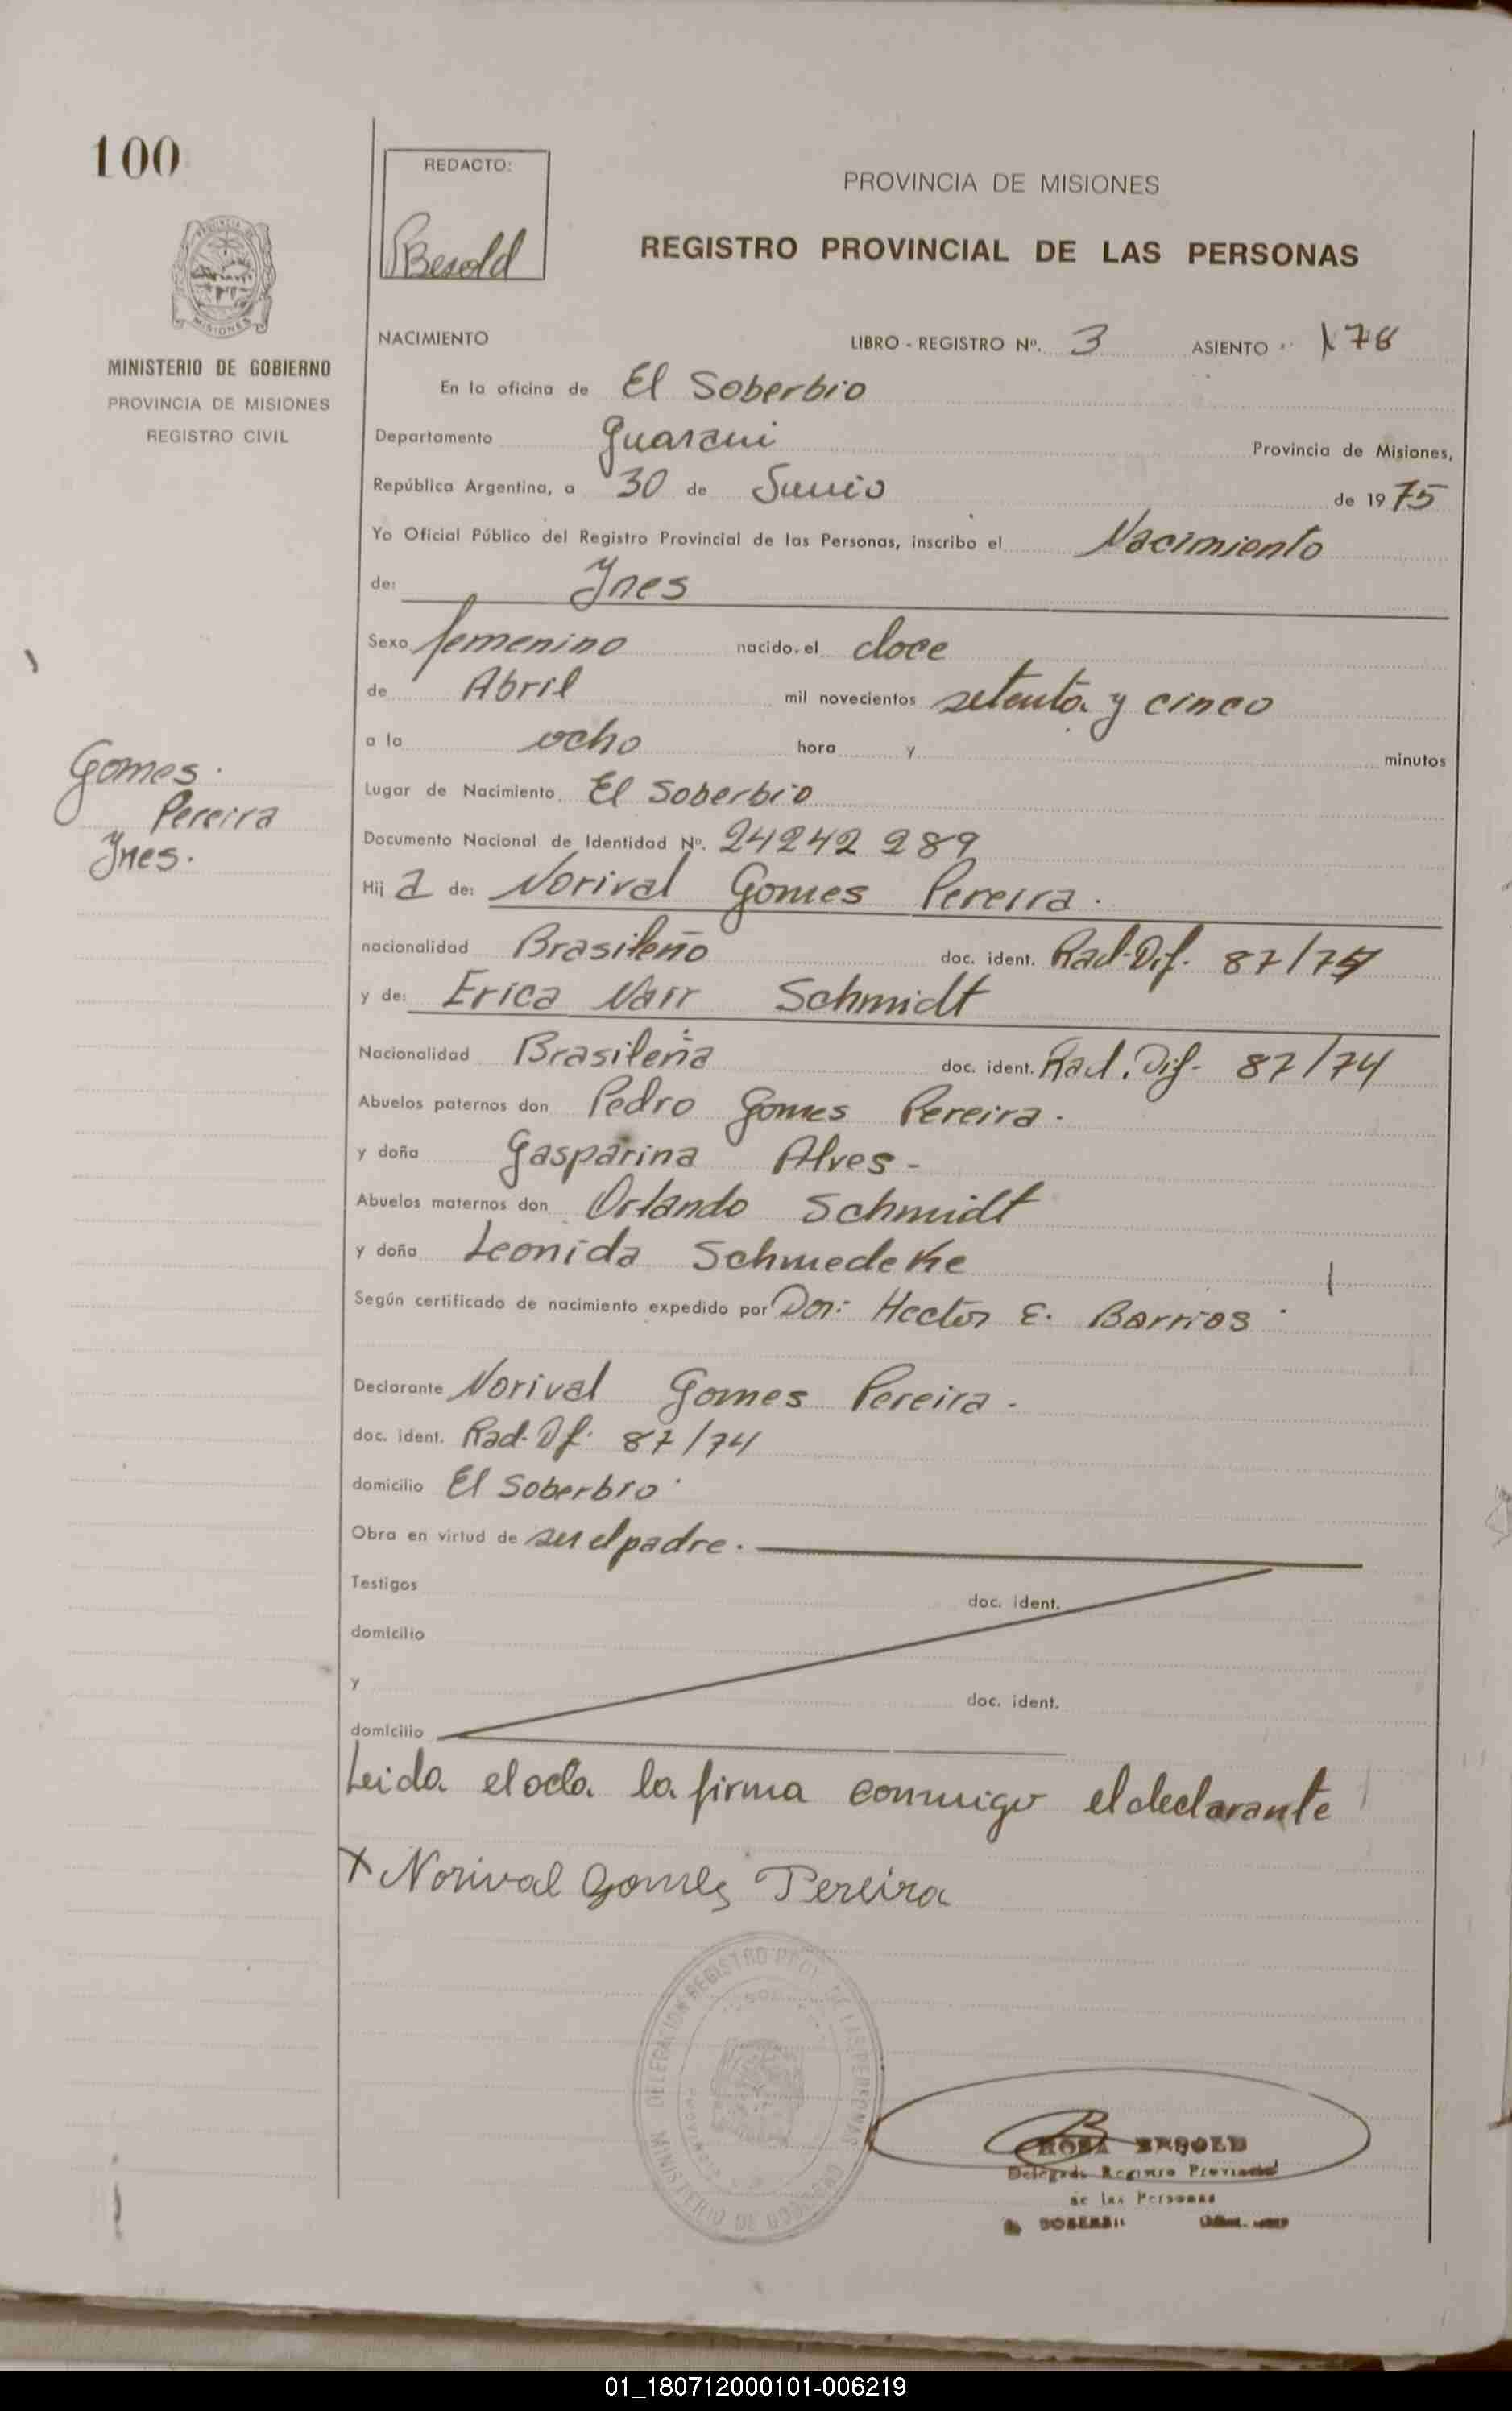 100
REDACTO:
Besold
PROVINCIA DE MISIONES
REGISTRO PROVINCIAL DE LAS PERSONAS
MISIONES
MINISTERIO DE GOBIERNO
PROVINCIA DE MISIONES
REGISTRO CIVIL
NACIMIENTO LIBRO - REGISTRO Nº. 3 ASIENTO 178
En la oficina de El Soberbio
Departamento Guarani Provincia de Misiones,
República Argentina, a 30 de Junio de 1975
Yo Oficial Público del Registro Provincial de las Personas, inscribo el Nacimiento
de: Ynes
Sexo femenino nacido el doce
de Abril mil novecientos setenta y cinco
a la ocho hora y minutos
Lugar de Nacimiento El Soberbio
Gomes
Pereira
Ynes.
Documento Nacional de Identidad Nº. 24242 289
Hij a de: Norival Gomes Pereira.
nacionalidad Brasileño doc. ident. Rad-Dif. 87/74
y de: Erica Nair Schmidt
Nacionalidad Brasileña doc. ident. Rad. Dif- 87/74
Abuelos paternos don Pedro Gomes Pereira.
y doña Gasparina Alves-
Abuelos maternos don Orlando Schmidt
y doña Leonida Schmedeke
Según certificado de nacimiento expedido por Dor: Hector E. Barrios
Declarante Norival Gomes Pereira.
doc. ident. Rad. Df. 87/74
domicilio El Soberbio
Obra en virtud de ser el padre.
Testigos doc. ident.
domicilio
y doc. ident.
domicilio
Leida el acta la firma conmigo el declarante
X Norival Gomes Pereira
DELEGACION REGISTRO PROV. DE LAS PERSONAS
MINISTERIO DE GOBIERNO
ROSA BESOLD
Delegada Registro Provincial
de las Personas
01_180712000101-006219